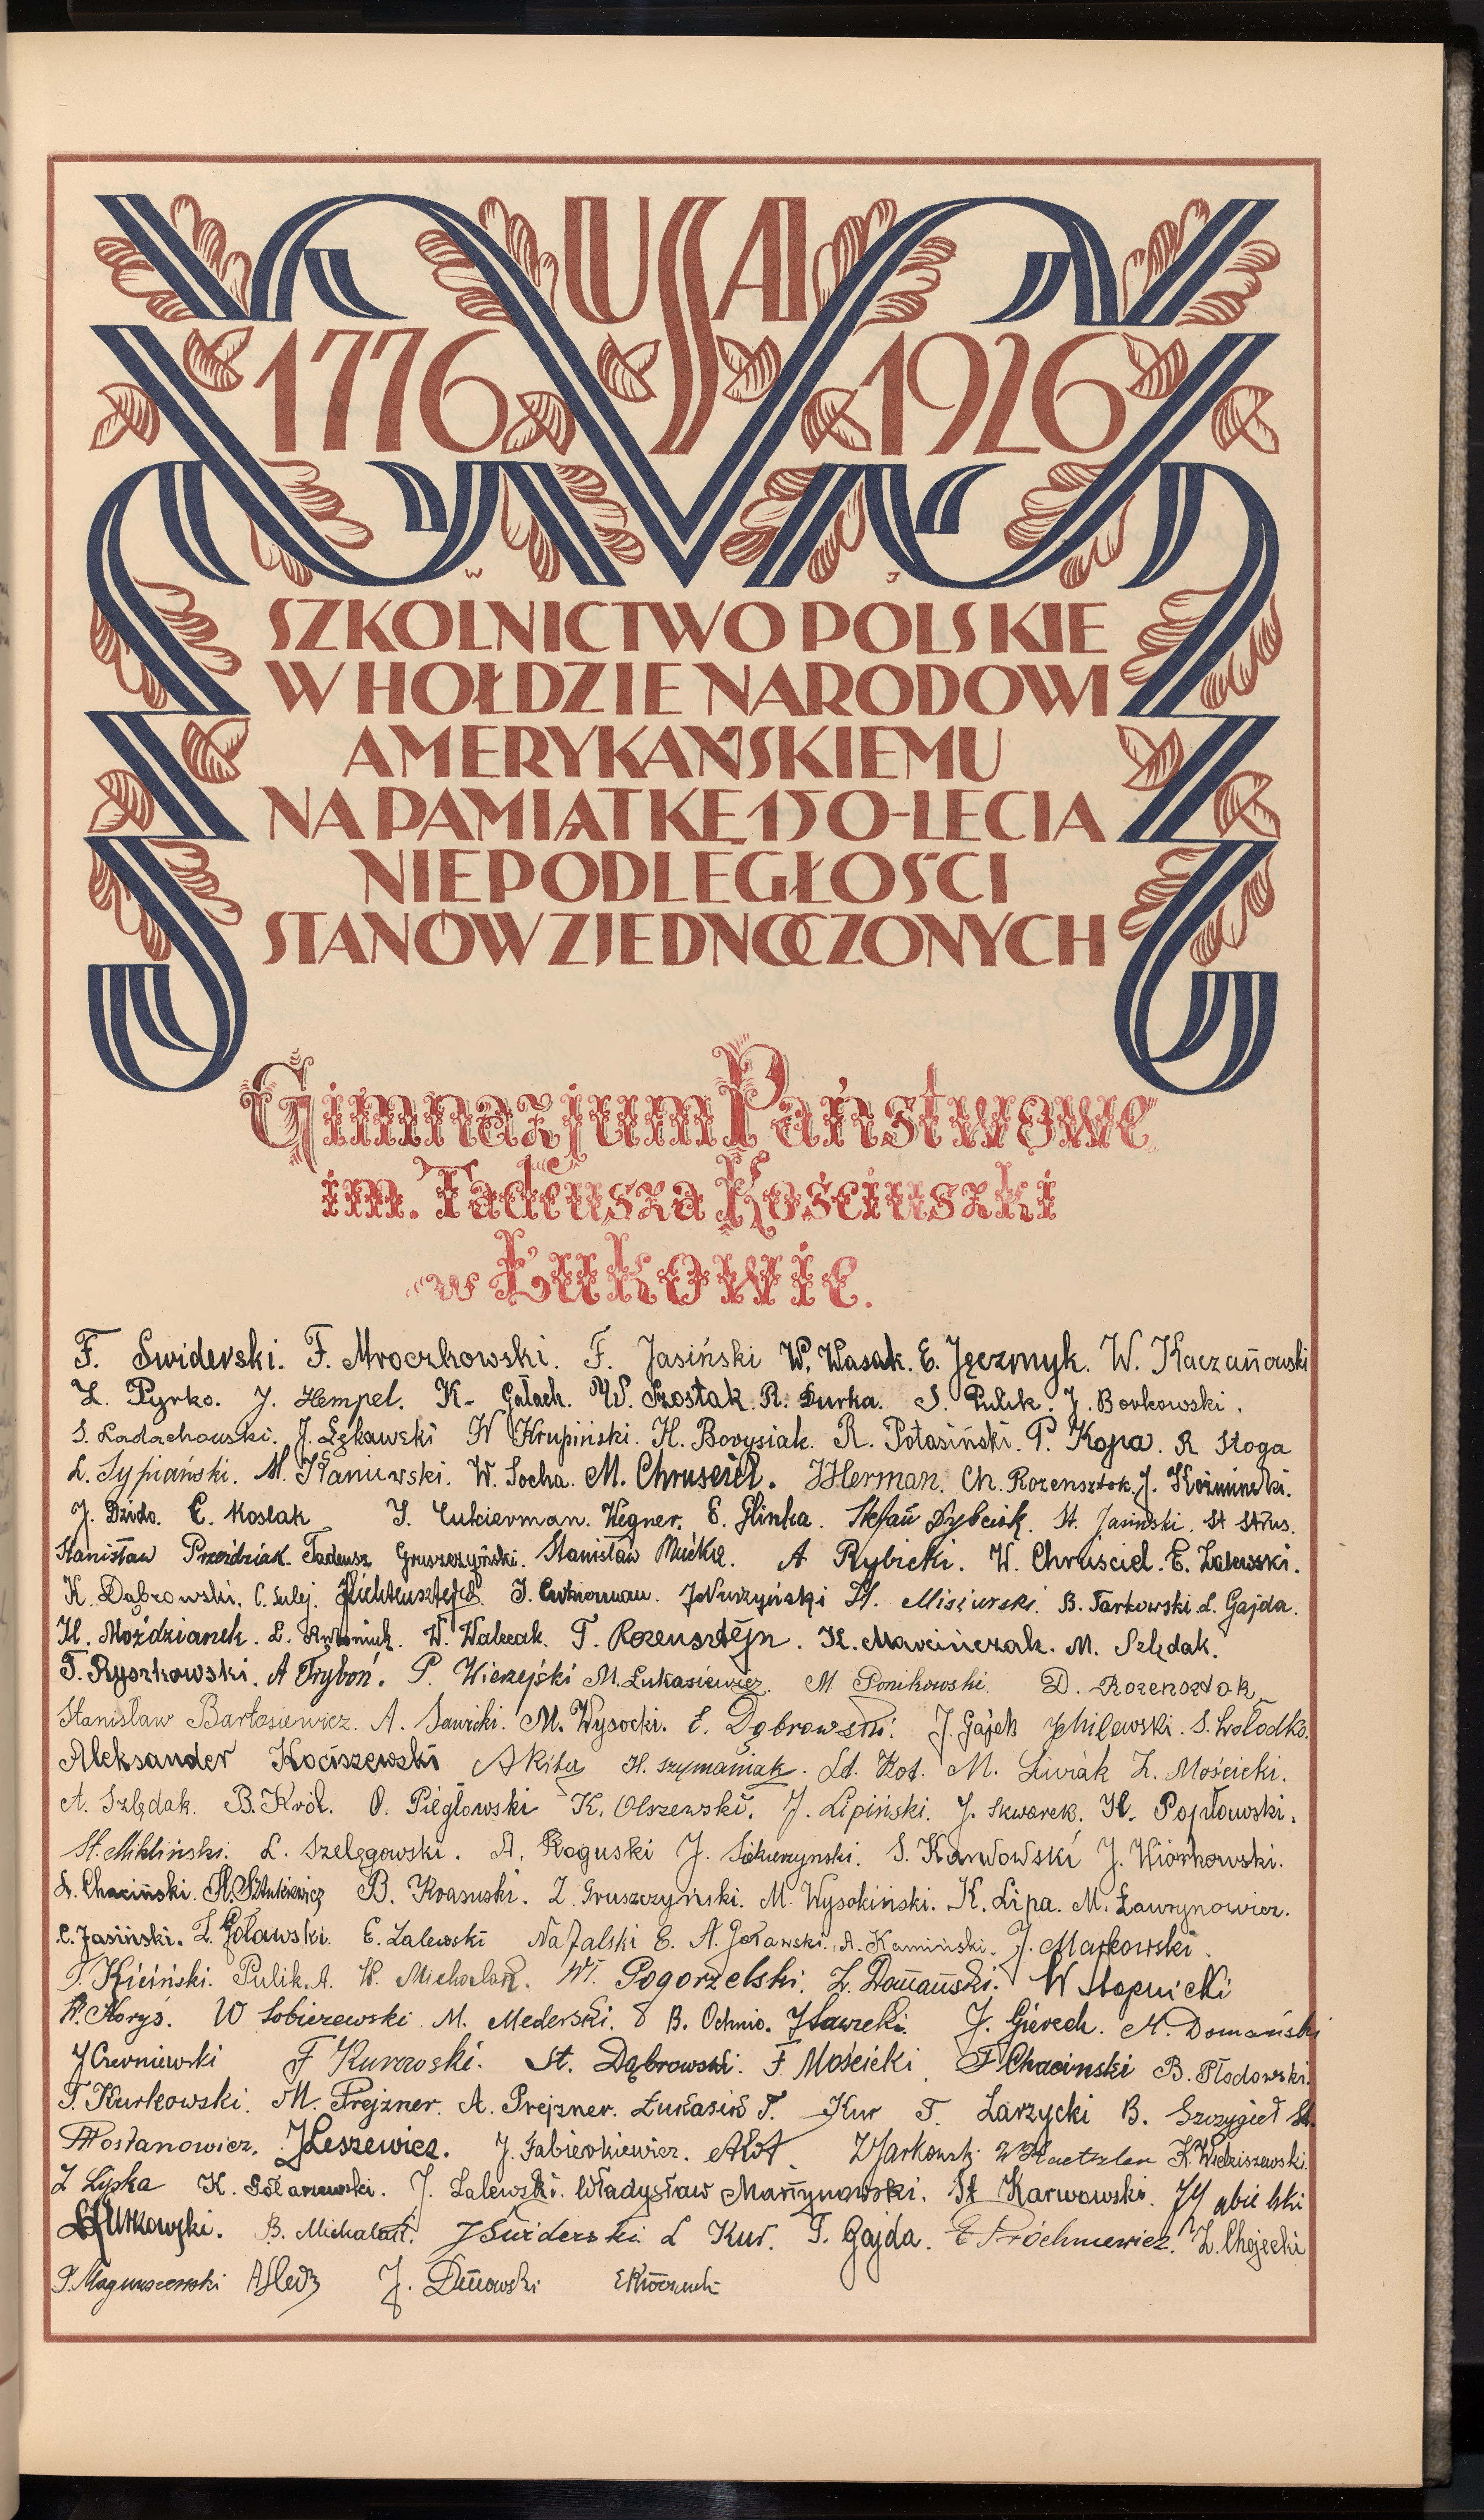 USA
1776 1926
W J
SZKOLNICTWO POLSKIE
W HOŁDZIE NARODOWI
AMERYKAŃSKIEMU
NA PAMIĄTKĘ 150-LECIA
NIEPODLEGŁOŚCI
STANÓW ZJEDNOCZONYCH
Gimnazjum Państwowe
im. Tadeusza Kościuszki
w Łukowie.
F. Swiderski. F. Mroczkowski. F. Jasiński W. Wasak. E. Jęczmyk. W. Kaczanowski
Z. Pyrko. J. Hempel. K. Gałach. W. Szostak. R. Burka. S. Pulik. J. Borkowski.
S. Ładachowski. J. Łękawski W Krupiński. H. Borysiak. R. Potasiński. P. Kopa. R Stoga
L. Sypiański. M. Kaniewski. W. Socha. M. Chruściel. J Herman. Ch. Rozensztok. J. Koźminski.
J. Dzido. C. Koslak J. Cukierman. Wegner. E. Glinka. Stefan Dybcisk. St. Jasinski. St Strus.
Stanisław Przeździak. Tadeusz Gruszczyński. Stanisław Mućka. A Rybicki. W. Chruściel. E. Zalewski.
K. Dąbrowski. C. Sulej. J. Cukierman. J Nurzyński St. Misiurski. B. Tarkowski. L. Gajda.
H. Moździanek. L. Antoniuk. W. Walczak. T. Rozensztejn. K. Marcińczak. M. Szlędak.
T. Ryszkowski. A Tryboń. P. Wierzejski M. Łukasiewicz. M Ponikowski. D. Rozensztok
Stanisław Bartosiewicz. A. Sawicki. M. Wysocki. E. Dąbrowski. J. Gajek J Milewski. S. Wołodko.
Aleksander Kociszewski A Kita H. Szymaniak. Ld. Kot. M. Siwiak Z. Mościcki.
A. Szlędak. B. Król. O. Piegłowski K. Olszewski. J. Lipiński. J. Skwarek. H. Popłowski.
St. Mikliński. L. Szelągowski. A. Roguski J. Siekierzynski. S. Karwowski J. Wiórkowski.
L. Chaciński. A. Sztukiewicz B. Krasuski. Z. Gruszczyński. M. Wysokiński. K. Lipa. M. Ławrynowicz.
C. Jasiński. Z. Goławski. E. Zalewski Nafalski E. A. Goławski. A. Kamiński. J. Markowski.
T. Kiciński. Pulik. A. W. Michalak. Wł. Pogorzelski. Z. Domański. W Słopnicki
W. Koryś. W Sobiczewski. M. Mederski. B. Ochnio. J Sawicki. J. Gierech. M. Domański
J Czerniewski F Kurowski. St. Dąbrowski. F Mościcki. F Chacinski B. Płodowski.
T. Kurkowski. M. Prejzner. A. Prejzner. Łukasik T. Kur T. Zarzycki B. Szczygieł St.
Postanowicz. J Leszewicz. J. Fabierkiewicz. A Kot. Z Jarkowski K. Wiedziszewski.
Z Lipka K. Sółarzewski. J. Zalewski. Władysław Martynowski. St Karwowski.
B. Michalak. J Świderski L Kur. T. Gajda. E Próchniewicz. Z. Chojecki
P. Magnuszewski A Śledź J. Dmowski